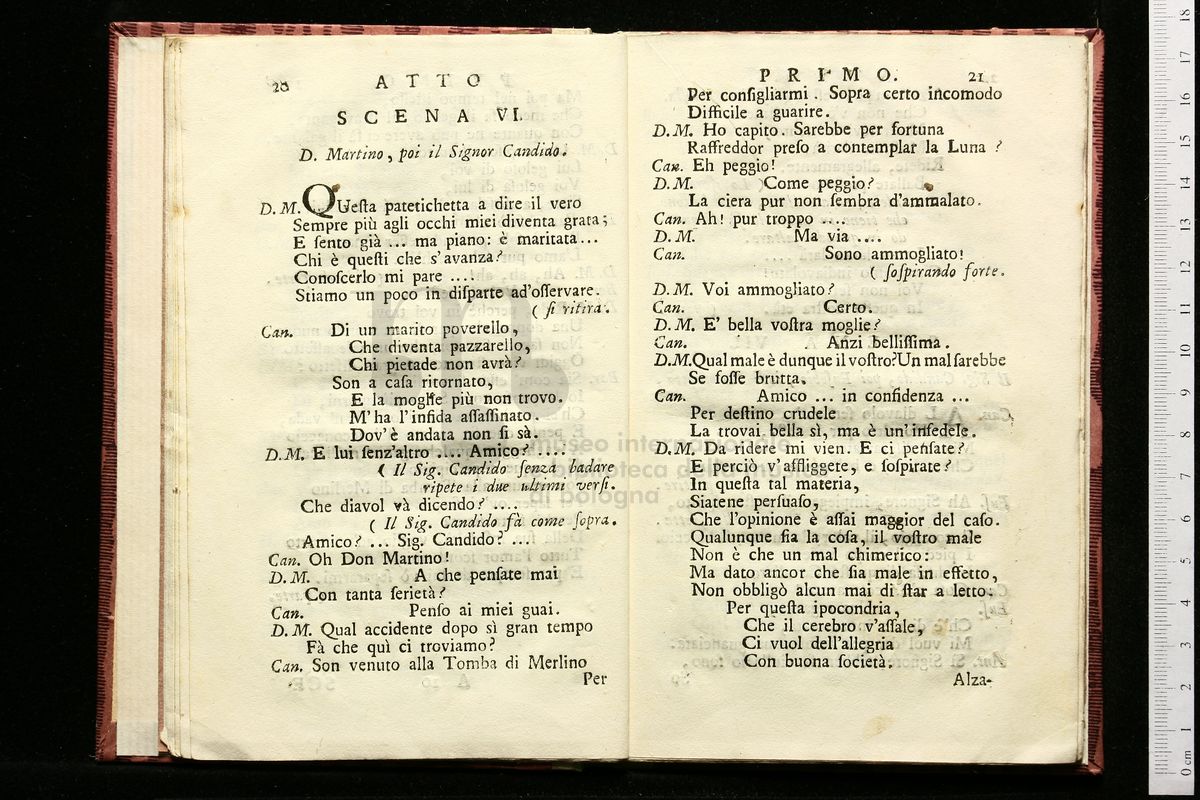 20
ATTO
SCENA VI.
D. Martino, poi il Signor Candido.
D. M. QUeſta patetichetta a dire il vero
Sempre più agli occhi miei diventa grata;
E ſento già ... ma piano: è maritata...
Chi è queſti che s'avanza?
Conoſcerlo mi pare ...!
Stiamo un poco in diſparte ad'oſſervare.
( ſi ritira.
Can. Di un marito poverello,
Che diventa pazzarello,
Chi pietade non avrà?
Son a caſa ritornato,
E la moglie più non trovo.
M'ha l'infida aſſaſſinato.
Dov'è andata non ſi sà.
D. M. E lui ſenz'altro .... Amico? ....
( Il Sig. Candido ſenza badare
ripete i due ultimi verſi.
Che diavol và dicendo? ....
( Il Sig. Candido fà come ſopra.
Amico? ... Sig. Candido? ....
Can. Oh Don Martino!
D. M. A che penſate mai
Con tanta ſerietà?
Can. Penſo ai miei guai.
D. M. Qual accidente dopo sì gran tempo
Fà che quì ci troviamo?
Can. Son venuto alla Tomba di Merlino
Per
PRIMO.
21
Per conſigliarmi. Sopra certo incomodo
Difficile a guarire.
D. M. Ho capito. Sarebbe per fortuna
Raffreddor preſo a contemplar la Luna?
Can. Eh peggio!
D. M. Come peggio?
La ciera pur non ſembra d'ammalato.
Can. Ah! pur troppo ....
D. M. Ma via ....
Can. Sono ammogliato!
( ſoſpirando forte.
D. M. Voi ammogliato?
Can. Certo.
D. M. E' bella voſtra moglie?
Can. Anzi belliſſima.
D. M. Qual male è dunque il voſtro? Un mal ſarebbe
Se foſſe brutta.
Can. Amico ... in confidenza ...
Per deſtino crudele
La trovai bella sì, ma è un'infedele.
D. M. Da ridere mi vien. E ci penſate?
E perciò v'affliggete, e ſoſpirate?
In queſta tal materia,
Siatene perſuaſo,
Che l'opinione è aſſai maggior del caſo.
Qualunque ſia la coſa, il voſtro male
Non è che un mal chimerico:
Ma dato ancor che ſia male in effetto,
Non obbligò alcun mai di ſtar a letto.
Per queſta ipocondria,
Che il cerebro v'aſſale,
Ci vuol dell'allegria
Con buona ſocietà.
Alza-
museo internazionale
e biblioteca della musica
di bologna
0 cm 1 2 3 4 5 6 7 8 9 10 11 12 13 14 15 16 17 18